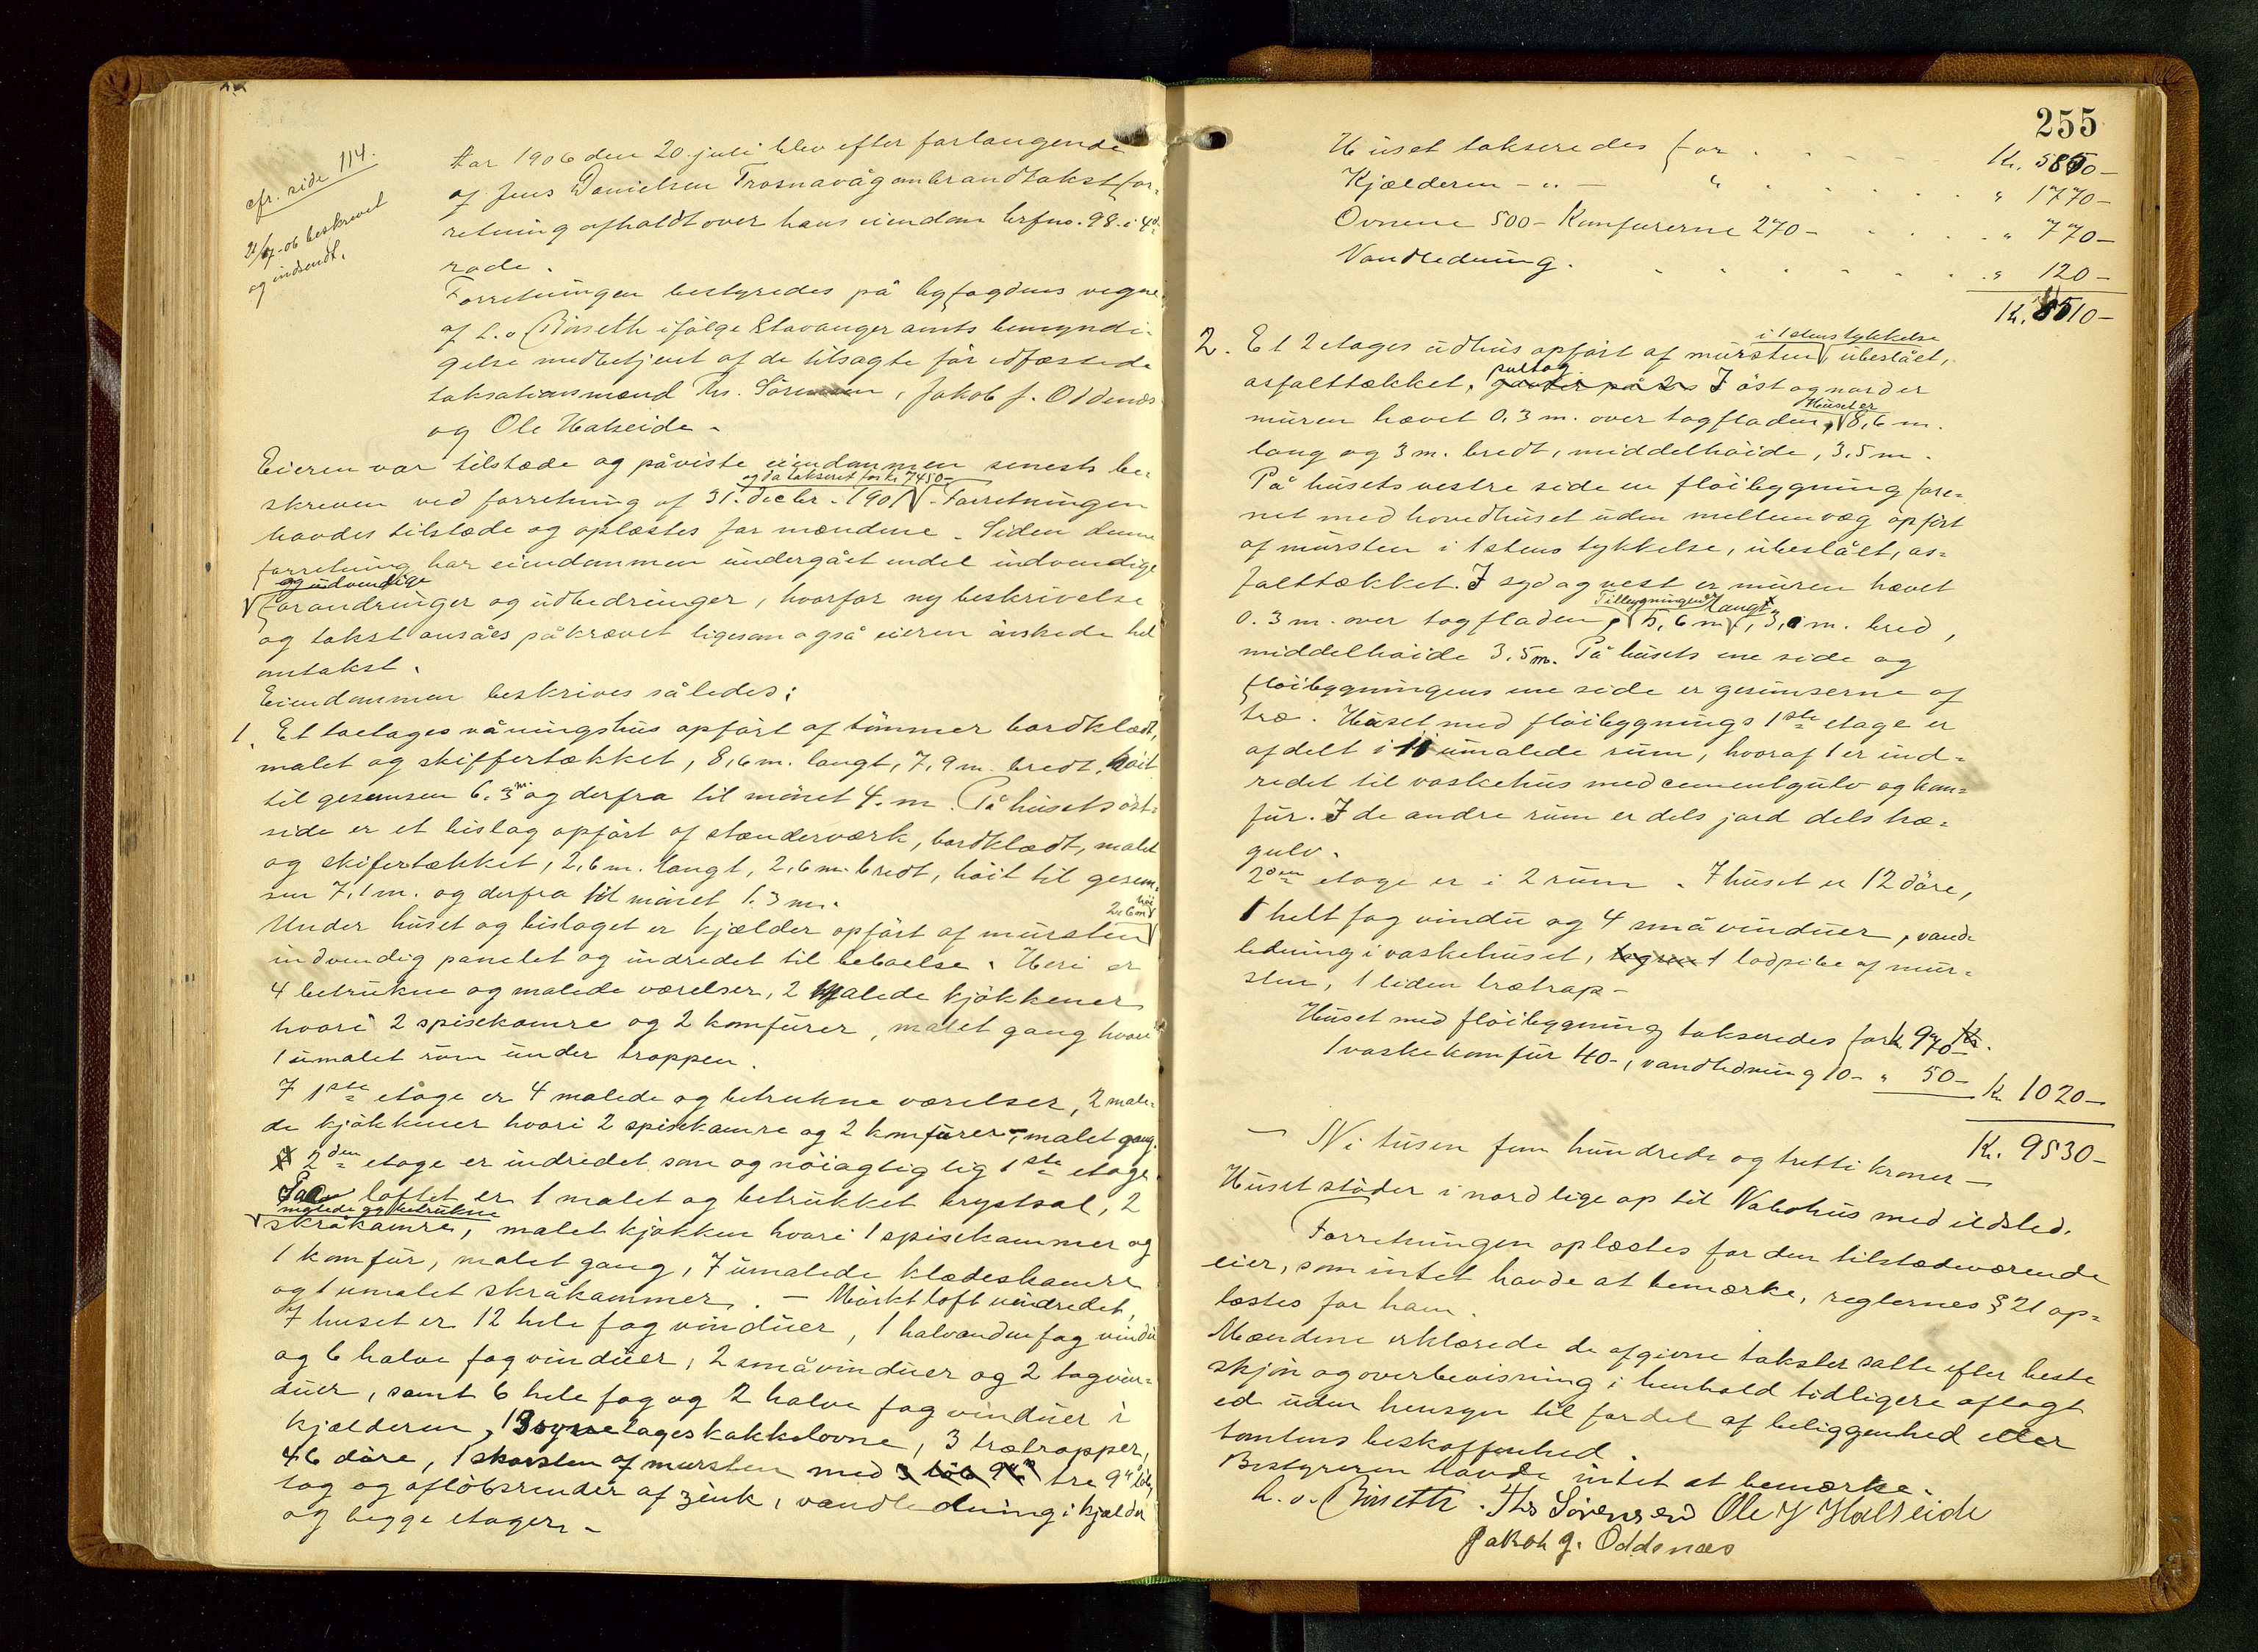 cfr. side 114.
21/7-06 beskrevet
og indsendt.
Aar 1906 den 20. juli blev efter forlangende
af Jens Danielsen Trosnavåg en brandtakstfor-
retning afholdt over hans eiendom brfno. 98 i 4de
rode.
Forretningen bestyredes på byfogdens vegne
af L. v. Binseth ifølge Stavanger amts bemyndi-
gelse med betjent af de tilsagte før edfæstede
taksationsmænd Ths. Sörensen, Jakob J. Oddenæs
og Ole Halseide.
Eieren var tilstæde og påviste eiendommen senest be-
og da takseret for kr 7450-
skreven ved forretning af 31. decbr. 1901. Forretningen
havdes tilstæde og oplæstes for mændene. Siden denne
forretning har eiendommen undergået endel indvendige
og udvendige
forandringer og udbedringer, hvorfor ny beskrivelse
og takst ansåes påkrævet ligesom også eieren ønskede hel
omtakst.
Eiendommen beskrives således:
1. Et toetages våningshus opført af tömmer bordklædt,
malet og skiffertækket, 8,6 m. langt, 7,9 m. bredt, höit
til gesemsen 6.3 m og derfra til mönet 4. m. På husets öst-
side er et bislag opfört af stænderværk, bordklædt, malet
og skifertækket, 2,6 m. langt, 2,6 m. bredt, höit til gesem-
sen 7,1 m. og derfra til mönet 1.3 m.
2.6 m höi
Under huset og bislaget er kjælder opfört af mursten
indvendig panelet og indredet til beboelse. Heri er
4 betrukne og malede værelser, 2 malede kjökkener
hvori 2 spisekamre og 2 komfurer, malet gang hvori
1 umalet rum under trappen.
I 1ste etage er 4 malede og betrukne værelser, 2 male-
de kjökkener hvori 2 spisekamre og 2 komfurer, malet gang.
2den etage er indredet som og nöiagtig lig 1ste etage
På loftet er 1 malet og betrukket brystsal, 2
malede og betrukne
skråkamre, malet kjökken hvori 1 spisekammer og
1 komfur, malet gang, 7 umalede klædeskamre
og 1 umalet skråkammer. - Mörkt loft uindredet,
I huset er 12 hele fag vinduer, 1 halvanden fag vindu
og 6 halve fag vinduer, 2 små vinduer og 2 tagvin-
duer, samt 6 hele fag og 2 halve fag vinduer i
kjælderen, etages kakkelovne, 3 trætrapper,
46 döre, 1 skorsten af mursten med tre 9" löb,
tag og aflöbsrender af zink, vandledning i kjælder
og begge etager. -
255
Huset takseredes for . . . Kr. 5850-
Kjælderen - " - " . . . " 1770-
Ovnene 500- Komfurerne 270- . . . " 770-
Vandledning . . . " 120-
Kr. 8510-
i 1 stens tykkelse
2. Et 2 etages udhus opfört af mursten ubeslået,
pultag
asfalttækket. I öst og nord er
Huset er
muren hævet 0,3 m. over tagfladen, 8,6 m.
lang og 3 m. bredt, middelhöide, 3,5 m.
På husets vestre side en flöibygning fore-
net med hovedhuset uden mellemvæg opfört
af mursten i 1 stens tykkelse, ubeslået, as-
falttækket. I syd og vest er muren hævet
Tilbygningen er langt
0.3 m. over tagfladen, 5,6 m, 3, m. bred,
middelhöide 3.5 m. På husets ene side og
flöibygningens ene side er gesimserne af
træ. Huset med flöibygnings 1ste etage er
afdelt i 11 umalede rum, hvoraf 1 er ind-
redet til vaskehus med cementgulv og kom-
fur. I de andre rum er dels jord dels træ-
gulv.
2den etage er i 2 rum. I huset er 12 döre,
1 helt fag vindu og 4 små vinduer, vand-
ledning i vaskehuset, 1 lodpibe af mur-
sten, 1 liden trætrap-
Huset med flöibygning takseredes for kr 970-
1 vaskekomfur 40-, vandledning 10- " 50- Kr 1020-
Kr. 9530-
- Ni tusen fem hundrede og tretti kroner -
Huset stöder i nord lige op til Nabohus med ildsted.
Forretningen oplæstes for den tilstædeværende
eier, som intet havde at bemærke, reglernes § 21 op-
læstes for ham.
Mændene erklærede de afgivne takster satte efter beste
skjön og overbevisning i henhold tidligere aflagt
ed uden hensyn til fordel af beliggenhed eller
tomtens beskaffenhed.
Bestyreren havde intet at bemærke.
L. v. Binseth. Ths Sörensen Ole J Halseide
Jakob J. Oddenæs